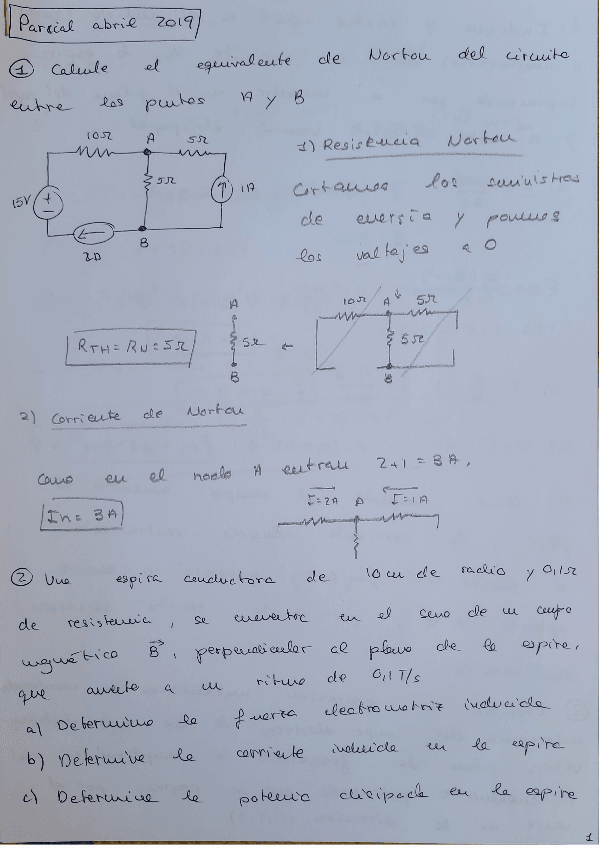 Parcial abril 2019
① Calcule el equivalente de Norton del circuito
entre los puntos A y B
10Ω A 5Ω
15V + - 5Ω 1A
2A B
1) Resistencia Norton
Cortamos los suministros
de energía y ponemos
los voltajes a 0
10Ω A 5Ω
5Ω
B
A
5Ω
B
RTH = RN = 5Ω
2) Corriente de Norton
Como en el nodo A entran 2+1 = 3A,
In = 3A
I=2A A I=1A
② Una espira conductora de 10 cm de radio y 0,1Ω
de resistencia, se encuentra en el seno de un campo
magnético B, perpendicular al plano de la espira,
que aumenta a un ritmo de 0,1 T/s
a) Determine la fuerza electromotriz inducida
b) Determine la corriente inducida en la espira
c) Determine la potencia disipada en la espira
1